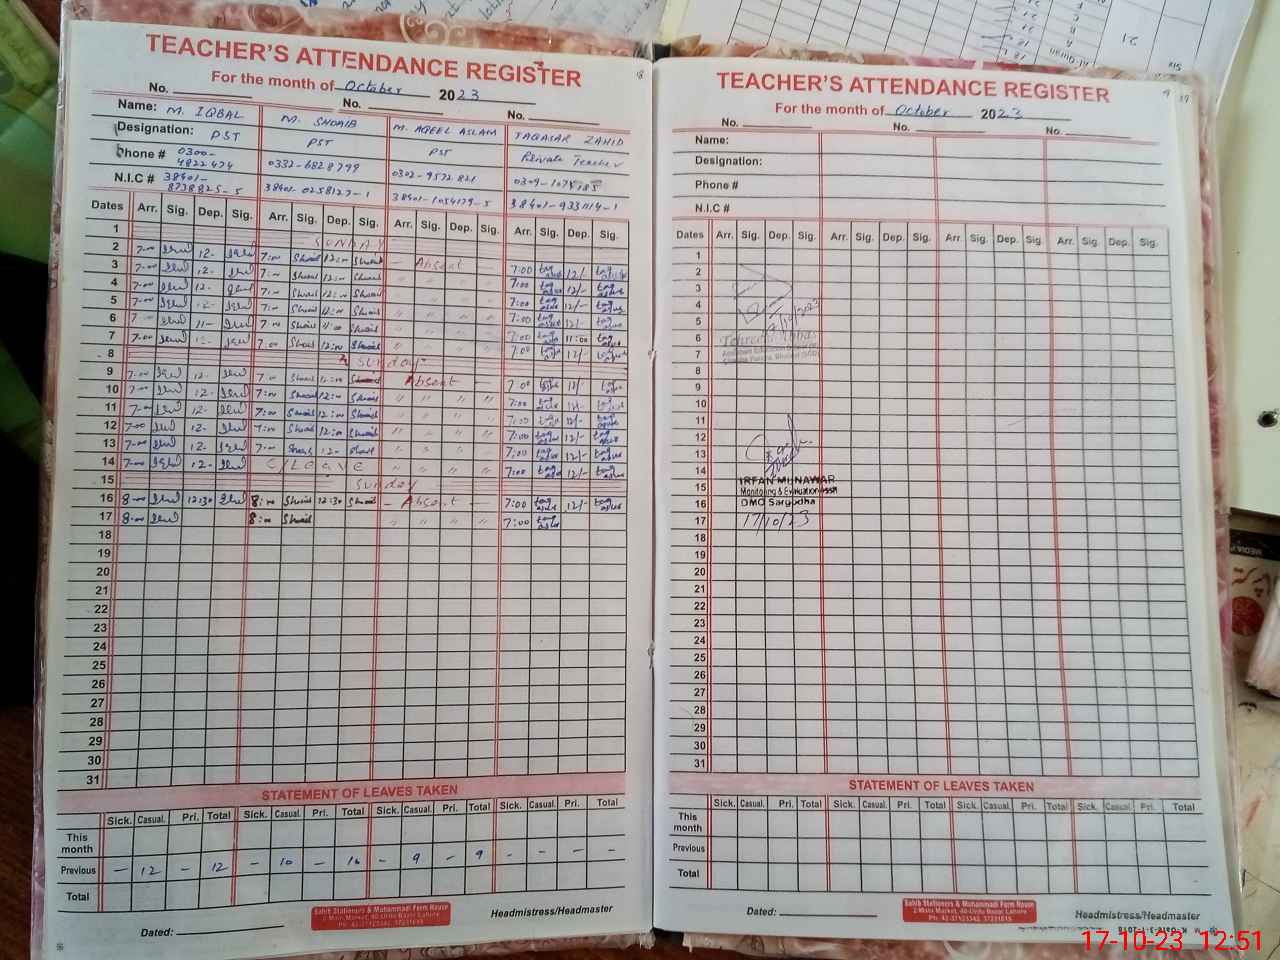 TEACHER'S ATTENDANCE REGISTER
For the month of October 2023
No. No. No.
Name: M. IQBAL M. SHOAIB M. AQEEL ASLAM TAQASAR ZAHID
Designation: PST PST PST Private Teacher
Phone # 0300-4822474 0332-6828799 0302-9572821
N.I.C # 38401-8738825-5 38401-0258127-1 38401-1054179-5 38401-9331114-1
Dates Arr. Sig. Dep. Sig. Arr. Sig. Dep. Sig. Arr. Sig. Dep. Sig. Arr. Sig. Dep. Sig.
1 SUNDAY
2 7-00 12- 7:00 Shoaib 12:00 Shoaib - Absent - 7:00 12/-
3 7-00 12- 7:00 Shoaib 12:00 Shoaib " " " " 7:00 12/-
4 7-00 12- 7:00 Shoaib 12:00 Shoaib " " " " 7:00 12/-
5 7-00 12- 7:00 Shoaib 12:00 Shoaib " " " " 7:00 12/-
6 7-00 11- 7:00 Shoaib 11:00 Shoaib " " " " 7:00 11:00
7 7-00 12- 7:00 Shoaib 12:00 Shoaib " " " " 7:00 12/-
8 Sunday
9 7-00 12- 7:00 Shoaib 12:00 Shoaib - Absent - 7:00 12/-
10 7-00 12- 7:00 Shoaib 12:00 Shoaib " " " " 7:00 12/-
11 7-00 12- 7:00 Shoaib 12:00 Shoaib " " " " 7:00 12/-
12 7-00 12- 7:00 Shoaib 12:00 Shoaib " " " " 7:00 12/-
13 7-00 12- 7:00 Shoaib 12- Shoaib " " " " 7:00 12/-
14 7-00 12- C/Leave " " " " 7:00 12/-
15 Sunday
16 8-00 12:30 8:00 Shoaib 12:30 Shoaib - Absent - 7:00 12/-
17 8-00 8:00 Shoaib " " " " 7:00
18
19
20
21
22
23
24
25
26
27
28
29
30
31
STATEMENT OF LEAVES TAKEN
Sick. Casual. Pri. Total Sick. Casual. Pri. Total Sick. Casual. Pri. Total Sick. Casual. Pri. Total
This month
Previous - 12 - 12 - 10 - - 9 - 9 - - - -
Total
Sahib Stationers & Muhammadi Form House
2-Mian Market, 40-Urdu Bazar Lahore
Dated: Headmistress/Headmaster
TEACHER'S ATTENDANCE REGISTER
For the month of October 2023
No. No. No.
Name:
Designation:
Phone #
N.I.C #
Dates Arr. Sig. Dep. Sig. Arr. Sig. Dep. Sig. Arr. Sig. Dep. Sig. Arr. Sig. Dep. Sig.
1
2
3
4
5
6
7
8
9
10
11
12
13
14
15
16
17
18
19
20
21
22
23
24
25
26
27
28
29
30
31
IRFAN MUNAWAR
Monitoring & Evaluation
DMO Sargodha
17/10/23
STATEMENT OF LEAVES TAKEN
Sick. Casual. Pri. Total Sick. Casual. Pri. Total Sick. Casual. Pri. Total Sick. Casual. Pri. Total
This month
Previous
Total
Sahib Stationers & Muhammadi Form House
2-Mian Market, 40-Urdu Bazar Lahore
Dated: Headmistress/Headmaster
17-10-23 12:51